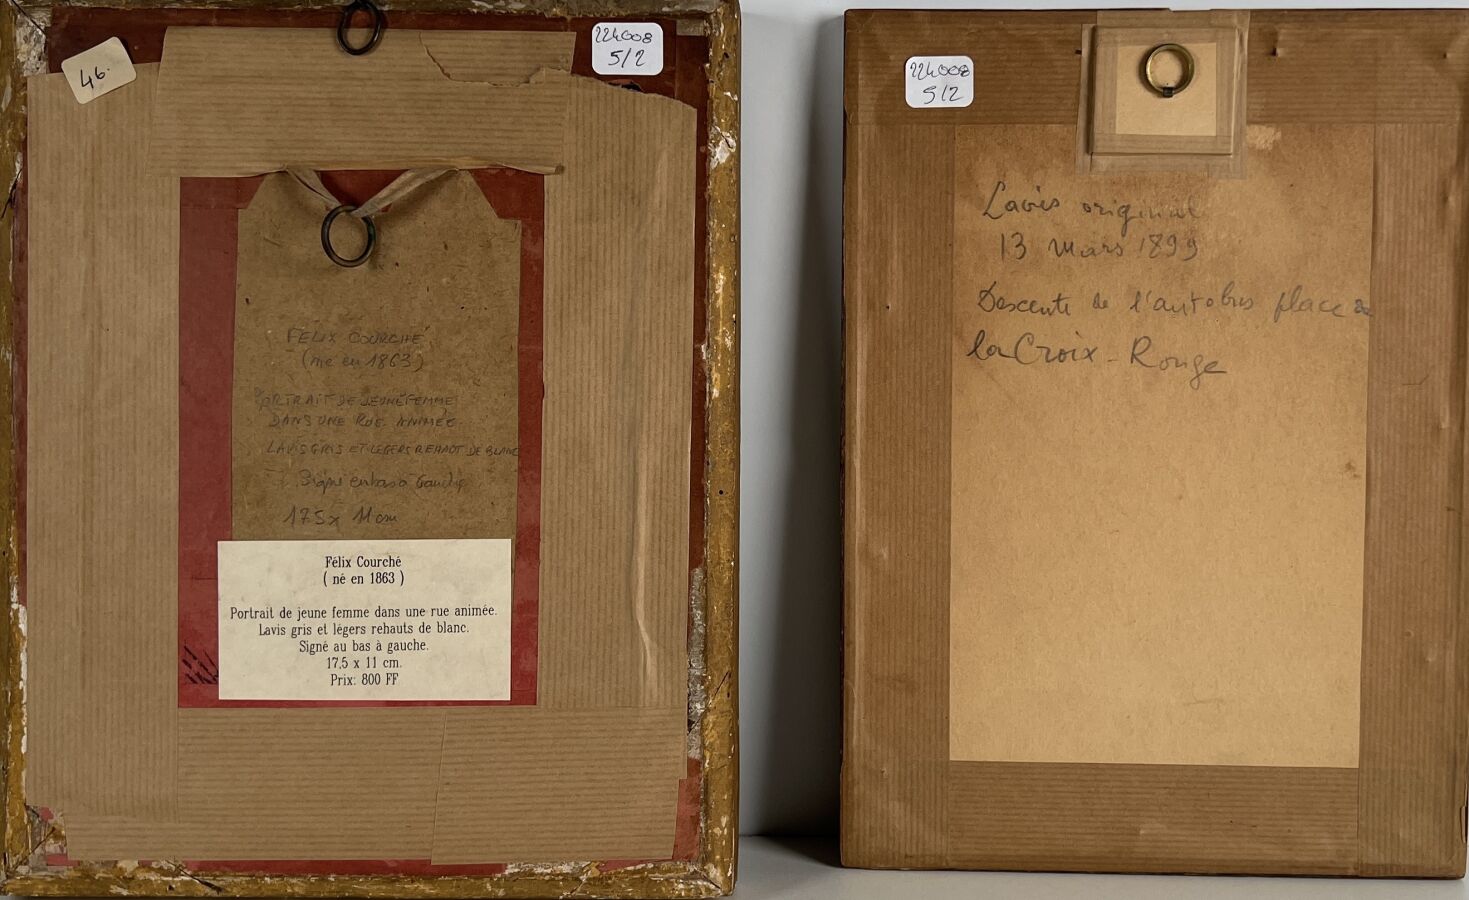 46.
224008
5/2
FÉLIX COURCHÉ
(né en 1863)
PORTRAIT DE JEUNE FEMME
DANS UNE RUE ANIMÉE.
LAVIS GRIS ET LEGERS REHAUT DE BLANC
Signé en bas à Gauche
17.5 x 11 cm
Félix Courché
( né en 1863 )
Portrait de jeune femme dans une rue animée.
Lavis gris et légers rehauts de blanc.
Signé au bas à gauche.
17,5 x 11 cm.
Prix: 800 FF
224008
5/2
Lavis original
13 mars 1899
Descente de l'autobus place de
la Croix-Rouge